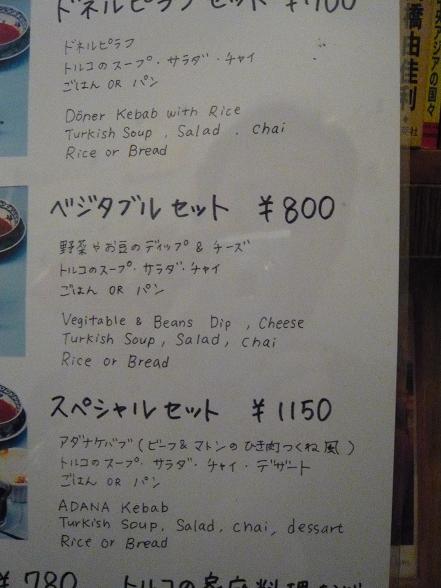 ドネルピラフセット ¥700
ドネルピラフ
トルコのスープ・サラダ・チャイ
ごはん OR パン
Döner Kebab with Rice
Turkish Soup , Salad . chai
Rice or Bread
ベジタブルセット ¥800
野菜やお豆のディップ & チーズ
トルコのスープ・サラダ・チャイ
ごはん OR パン
Vegitable & Beans Dip , Cheese
Turkish Soup , Salad , chai
Rice or Bread
スペシャルセット ¥1150
アダナケバブ ( ビーフ&マトンのひき肉つくね風 )
トルコのスープ・サラダ・チャイ・デザート
ごはん OR パン
ADANA Kebab
Turkish Soup , Salad , chai , dessart
Rice or Bread
¥780 トルコの家庭料理
橋由佳利
アジアの国々